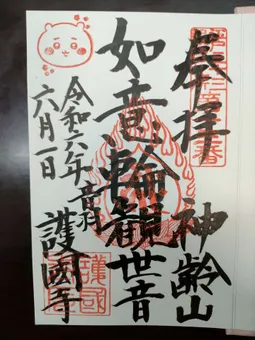 奉拝
神齢山
如意輪観世音
令和六年
六月一日
音羽
護國寺
護國